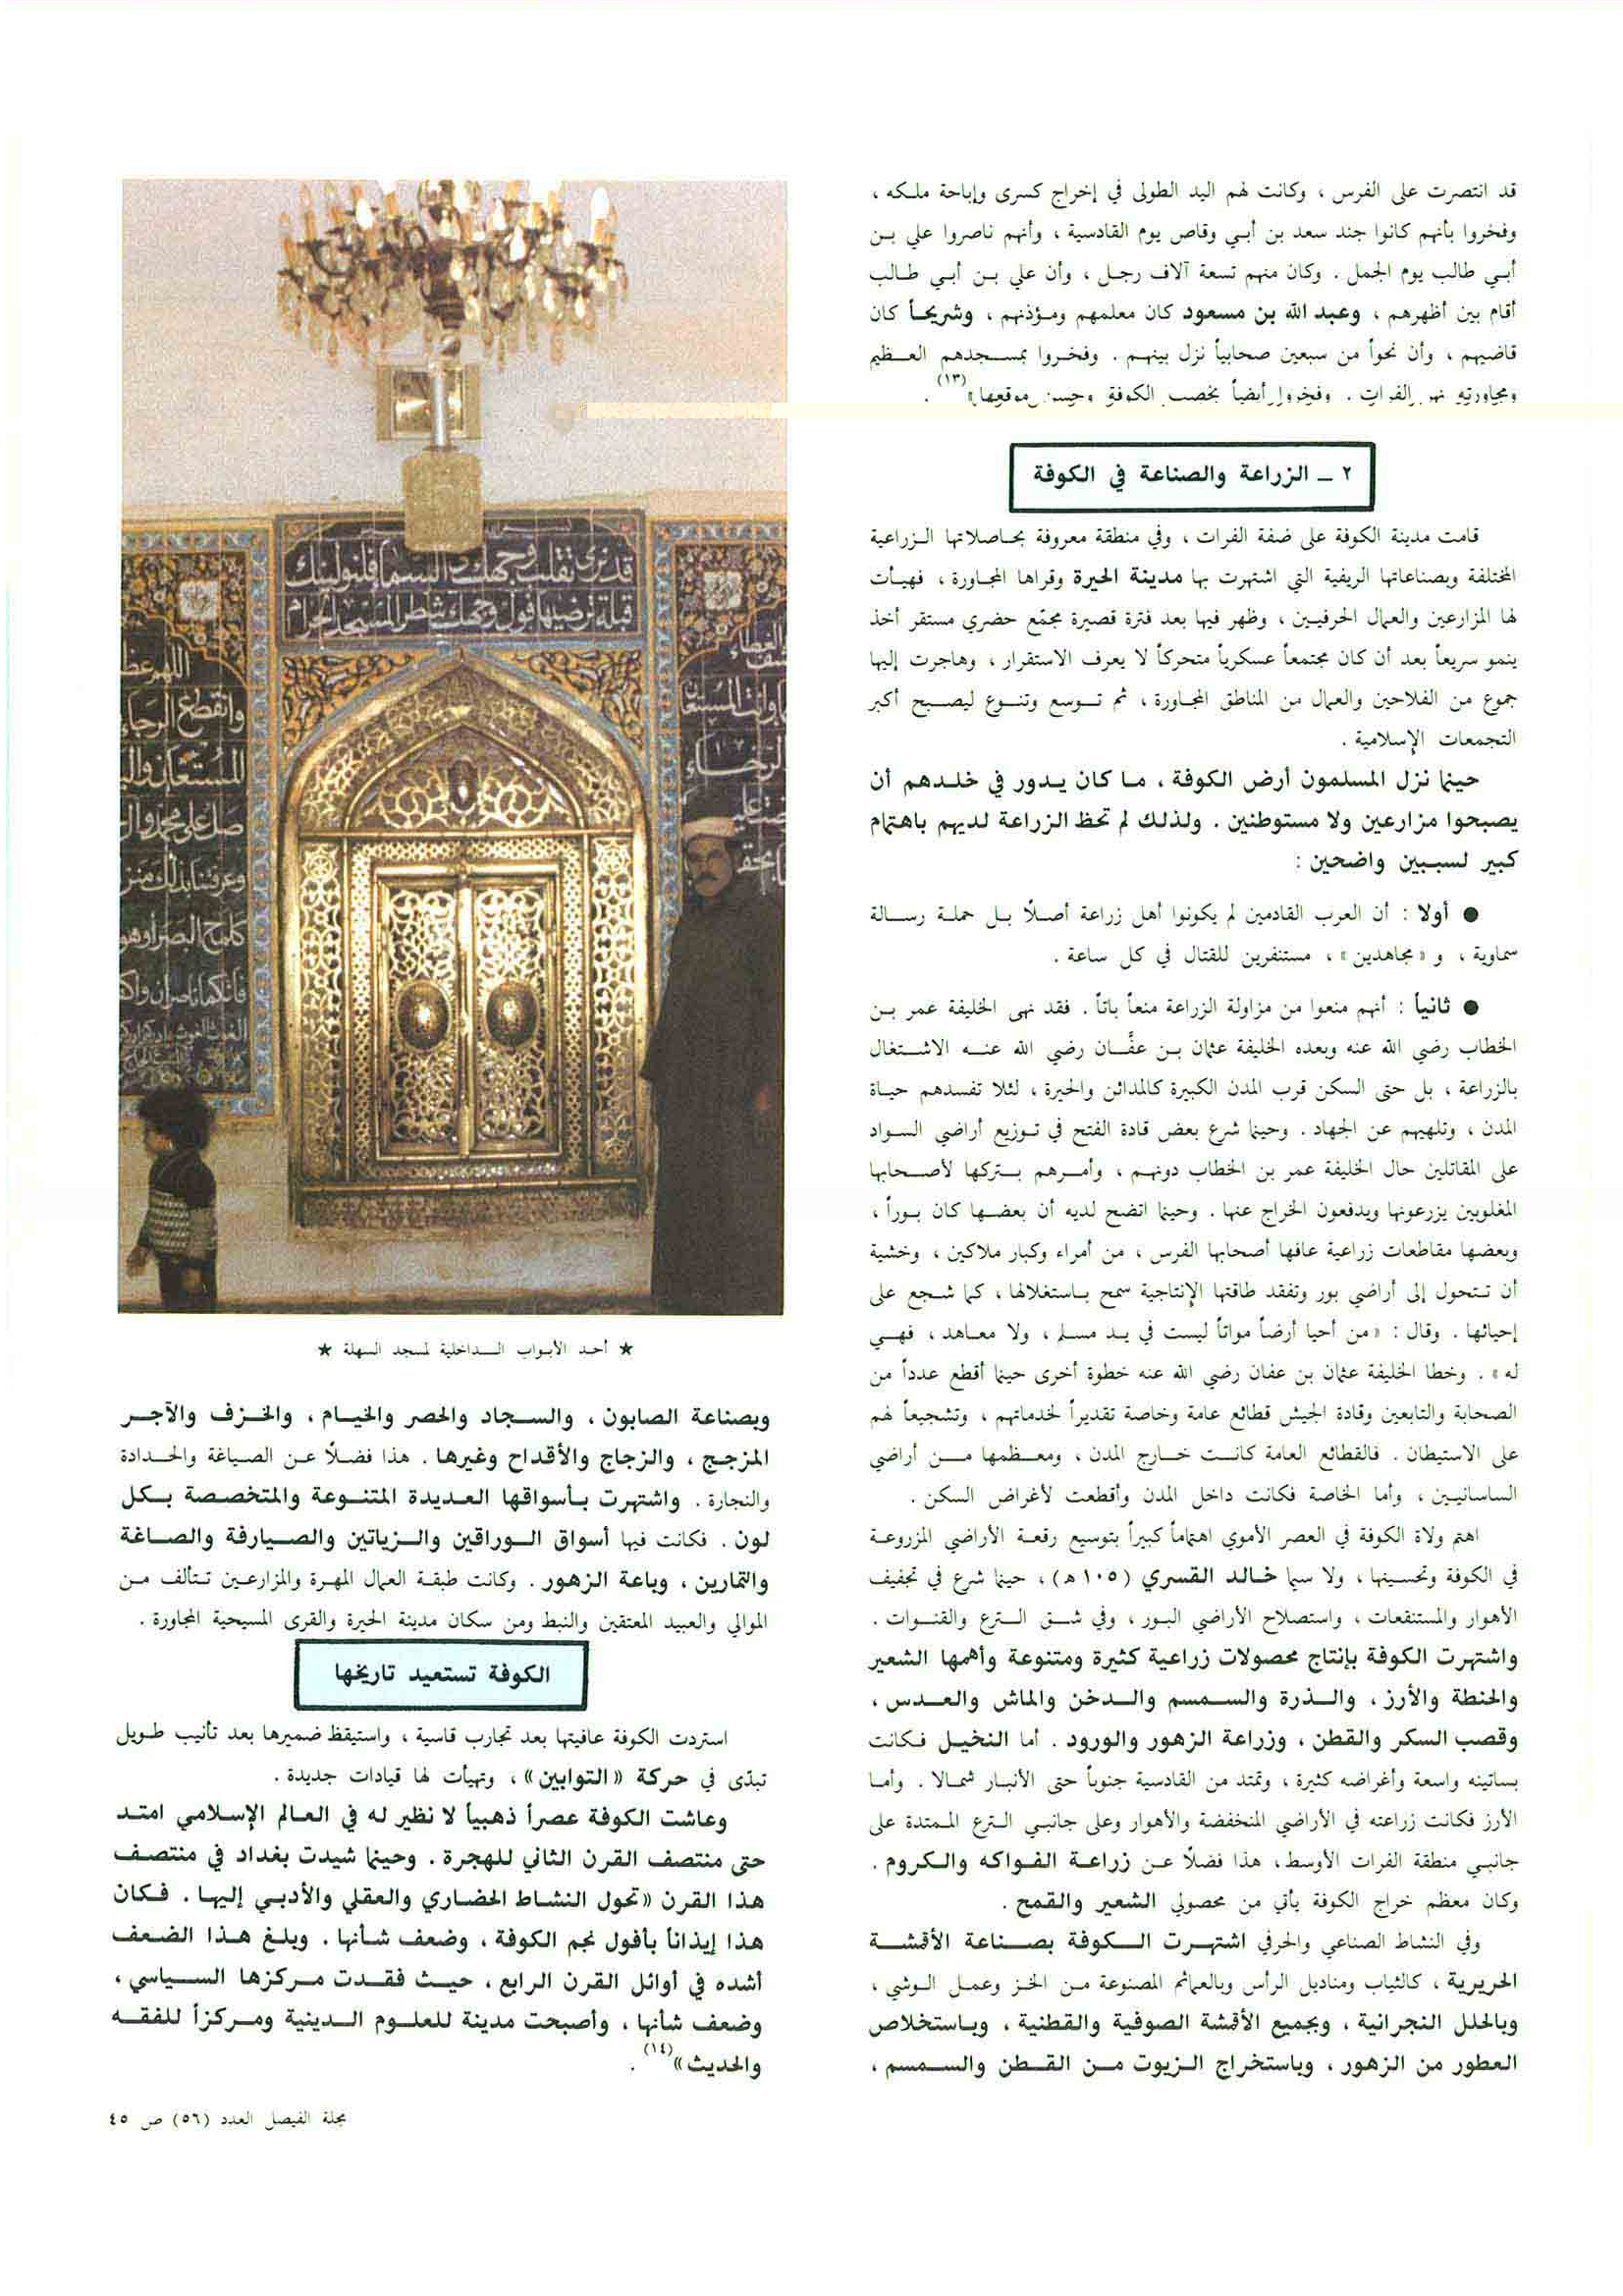 قد انتصرت على الفرس ، وكانت لهم اليد الطولى في إخراج كسرى وإباحة ملكه ،
وفخروا بأنهم كانوا جند سعد بن أبي وقاص يوم القادسية ، وأنهم ناصروا علي بن
أبي طالب يوم الجمل . وكان منهم تسعة آلاف رجل ، وأن علي بن أبي طالب
أقام بين أظهرهم ، وعبد الله بن مسعود كان معلمهم ومؤذنهم ، وشريحاً كان
قاضيهم ، وأن نحواً من سبعين صحابياً نزل بينهم . وفخروا بمسجدهم العظيم
ومجاورته نهر الفرات . وفخروا أيضاً بخصب الكوفة وحسن موقعها» (١٣) .
٢ ـ الزراعة والصناعة في الكوفة
قامت مدينة الكوفة على ضفة الفرات ، وفي منطقة معروفة بحاصلاتها الزراعية
المختلفة وبصناعاتها الريفية التي اشتهرت بها مدينة الحيرة وقراها المجاورة ، فهيأت
لها المزارعين والعمال الحرفيين ، وظهر فيها بعد فترة قصيرة مجمّع حضري مستقر أخذ
ينمو سريعاً بعد أن كان مجتمعاً عسكرياً متحركاً لا يعرف الاستقرار ، وهاجرت إليها
جموع من الفلاحين والعمال من المناطق المجاورة ، ثم توسع وتنوع ليصبح أكبر
التجمعات الإسلامية .
حينما نزل المسلمون أرض الكوفة ، ما كان يدور في خلدهم أن
يصبحوا مزارعين ولا مستوطنين . ولذلك لم تحظ الزراعة لديهم باهتمام
كبير لسببين واضحين :
● أولا : أن العرب القادمين لم يكونوا أهل زراعة أصلاً بل حملة رسالة
سماوية ، و «مجاهدين» ، مستنفرين للقتال في كل ساعة .
● ثانياً : أنهم منعوا من مزاولة الزراعة منعاً باتاً . فقد نهى الخليفة عمر بن
الخطاب رضي الله عنه وبعده الخليفة عثمان بن عفَّان رضي الله عنه الاشتغال
بالزراعة ، بل حتى السكن قرب المدن الكبيرة كالمدائن والحيرة ، لئلا تفسدهم حياة
المدن ، وتلهيهم عن الجهاد . وحينما شرع بعض قادة الفتح في توزيع أراضي السواد
على المقاتلين حال الخليفة عمر بن الخطاب دونهم ، وأمرهم بتركها لأصحابها
المغلوبين يزرعونها ويدفعون الخراج عنها . وحينما اتضح لديه أن بعضها كان بوراً ،
وبعضها مقاطعات زراعية عافها أصحابها الفرس ، من أمراء وكبار ملاكين ، وخشية
أن تتحول إلى أراضي بور وتفقد طاقتها الإنتاجية سمح باستغلالها ، كما شجع على
إحيائها . وقال : «من أحيا أرضاً مواتاً ليست في يد مسلم ، ولا معاهد ، فهي
له» . وخطا الخليفة عثمان بن عفان رضي الله عنه خطوة أخرى حينما أقطع عدداً من
الصحابة والتابعين وقادة الجيش قطائع عامة وخاصة تقديراً لخدماتهم ، وتشجيعاً لهم
على الاستيطان . فالقطائع العامة كانت خارج المدن ، ومعظمها من أراضي
الساسانيين ، وأما الخاصة فكانت داخل المدن وأقطعت لأغراض السكن .
اهتم ولاة الكوفة في العصر الأموي اهتماماً كبيراً بتوسيع رقعة الأراضي المزروعة
في الكوفة وتحسينها ، ولا سيما خالد القسري (١٠٥ هـ) ، حينما شرع في تجفيف
الأهوار والمستنقعات ، واستصلاح الأراضي البور ، وفي شق الترع والقنوات .
واشتهرت الكوفة بإنتاج محصولات زراعية كثيرة ومتنوعة وأهمها الشعير
والحنطة والأرز ، والذرة والسمسم والدخن والماش والعدس ،
وقصب السكر والقطن ، وزراعة الزهور والورود . أما النخيل فكانت
بساتينه واسعة وأغراضه كثيرة ، وتمتد من القادسية جنوباً حتى الأنبار شمالا . وأما
الأرز فكانت زراعته في الأراضي المنخفضة والأهوار وعلى جانبي الترع الممتدة على
جانبي منطقة الفرات الأوسط ، هذا فضلاً عن زراعة الفواكه والكروم .
وكان معظم خراج الكوفة يأتي من محصولي الشعير والقمح .
وفي النشاط الصناعي والحرفي اشتهرت الكوفة بصناعة الأقمشة
الحريرية ، كالثياب ومناديل الرأس وبالعمائم المصنوعة من الخز وعمل الوشي ،
وبالحلل النجرانية ، وبجميع الأقمشة الصوفية والقطنية ، وباستخلاص
العطور من الزهور ، وباستخراج الزيوت من القطن والسمسم ،
قد نرى تقلب وجهك في السماء فلنولينك
قبلة ترضيها فول وجهك شطر المسجد الحرام
وانقطع الرجاء
صل على محمد وال
★ أحد الأبواب الداخلية لمسجد السهلة ★
وبصناعة الصابون ، والسجاد والحصر والخيام ، والخزف والآجر
المزجج ، والزجاج والأقداح وغيرها . هذا فضلاً عن الصياغة والحدادة
والنجارة . واشتهرت بأسواقها العديدة المتنوعة والمتخصصة بكل
لون . فكانت فيها أسواق الوراقين والزياتين والصيارفة والصاغة
والتمارين ، وباعة الزهور . وكانت طبقة العمال المهرة والمزارعين تتألف من
الموالي والعبيد المعتقين والنبط ومن سكان مدينة الحيرة والقرى المسيحية المجاورة .
الكوفة تستعيد تاريخها
استردت الكوفة عافيتها بعد تجارب قاسية ، واستيقظ ضميرها بعد تأنيب طويل
تبدّى في حركة «التوابين» ، وتهيأت لها قيادات جديدة .
وعاشت الكوفة عصراً ذهبياً لا نظير له في العالم الإسلامي امتد
حتى منتصف القرن الثاني للهجرة . وحينما شيدت بغداد في منتصف
هذا القرن «تحول النشاط الحضاري والعقلي والأدبي إليها . فكان
هذا إيذاناً بأفول نجم الكوفة ، وضعف شأنها . وبلغ هذا الضعف
أشده في أوائل القرن الرابع ، حيث فقدت مركزها السياسي ،
وضعف شأنها ، وأصبحت مدينة للعلوم الدينية ومركزاً للفقه
والحديث» (١٤) .
مجلة الفيصل العدد (٥٦) ص ٤٥